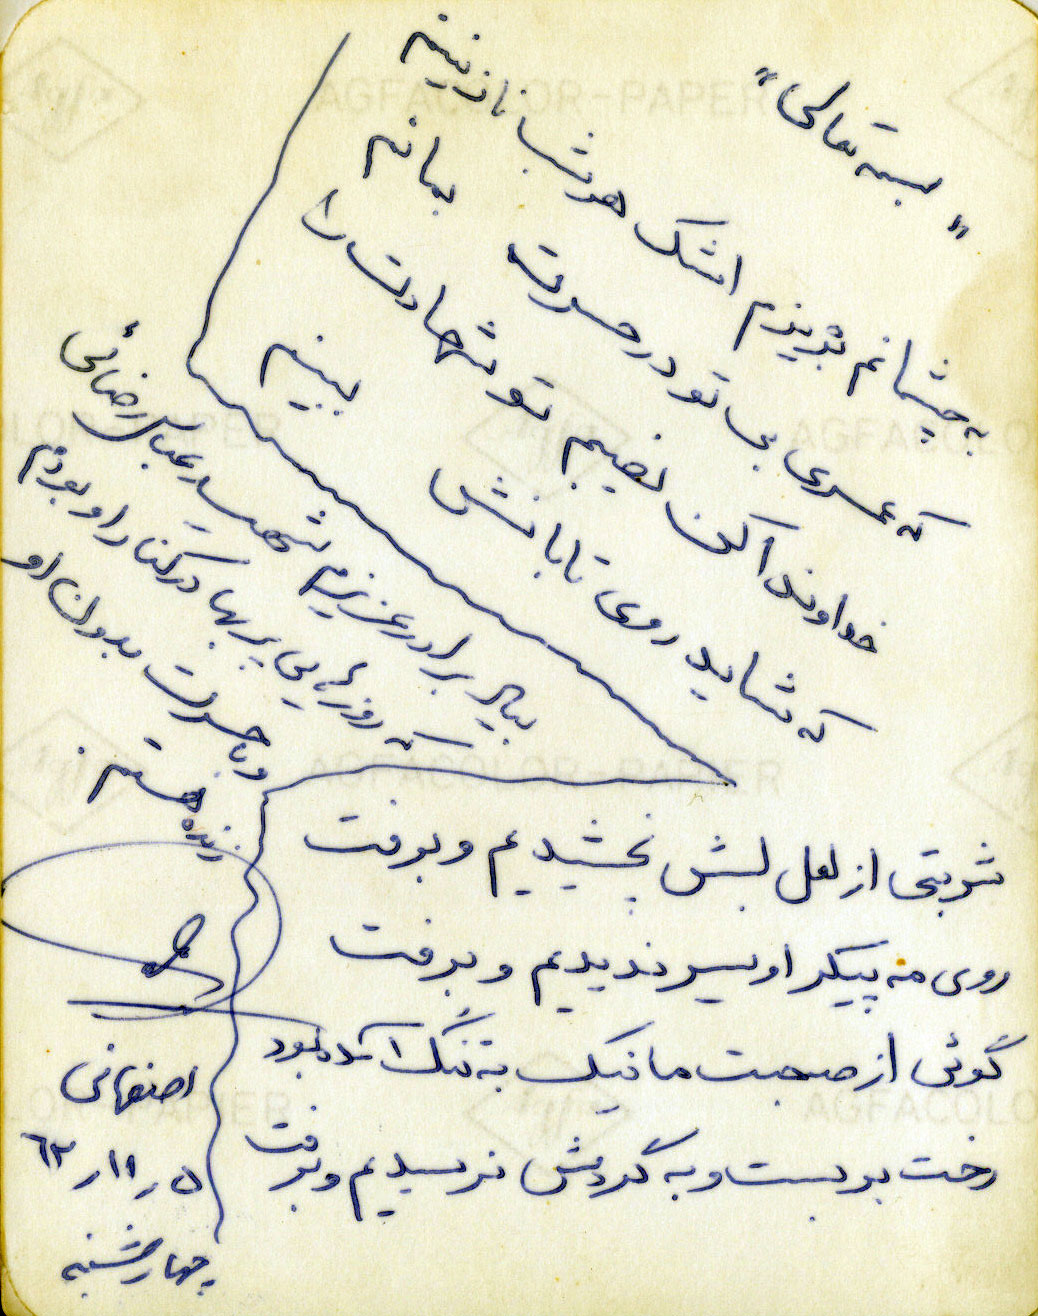 "بسمه تعالی"
به چشمانم بریزم اشک هر شب نازنینم
که عمری بی تو در حسرت بمانم
خداوندا کن نصیبم تو شهادت را
که شاید روی تابانش ببینم
بیاد برادر عزیزم شهید عباس رضائی
که روزهایی پر بها در کنار او بودم
و با حسرت بدون او
زنده هستم
شربتی از لعل لبش نچشیدیم و برفت
روی مه پیکر او سیر ندیدیم و برفت
گوئی از صحبت ما نیک به تنگ آمده بود
رخت بر بست و به گردش نرسیدیم و برفت
اصفهانی
۵ ر ۱۱ ر ۶۲
چهارشنبه
AGFACOLOR-PAPER
AGFACOLOR-PAPIER